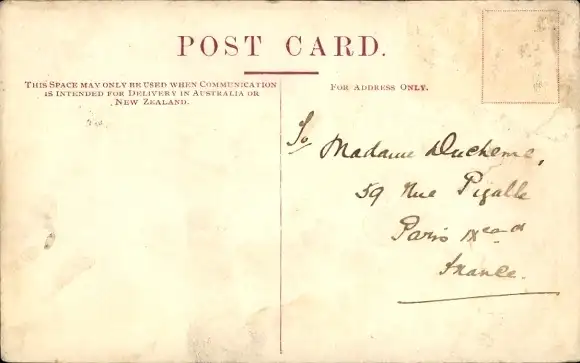 POST CARD.
THIS SPACE MAY ONLY BE USED WHEN COMMUNICATION
IS INTENDED FOR DELIVERY IN AUSTRALIA OR
NEW ZEALAND.
FOR ADDRESS ONLY.
To Madame Ducheme,
59 Rue Pigalle
Paris IX
France.